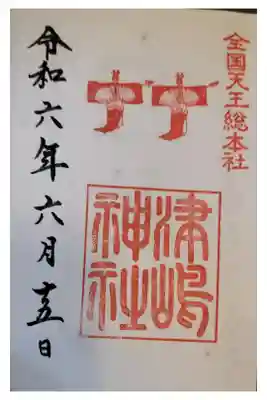 全国天王総本社
津嶋神社
令和六年六月十五日